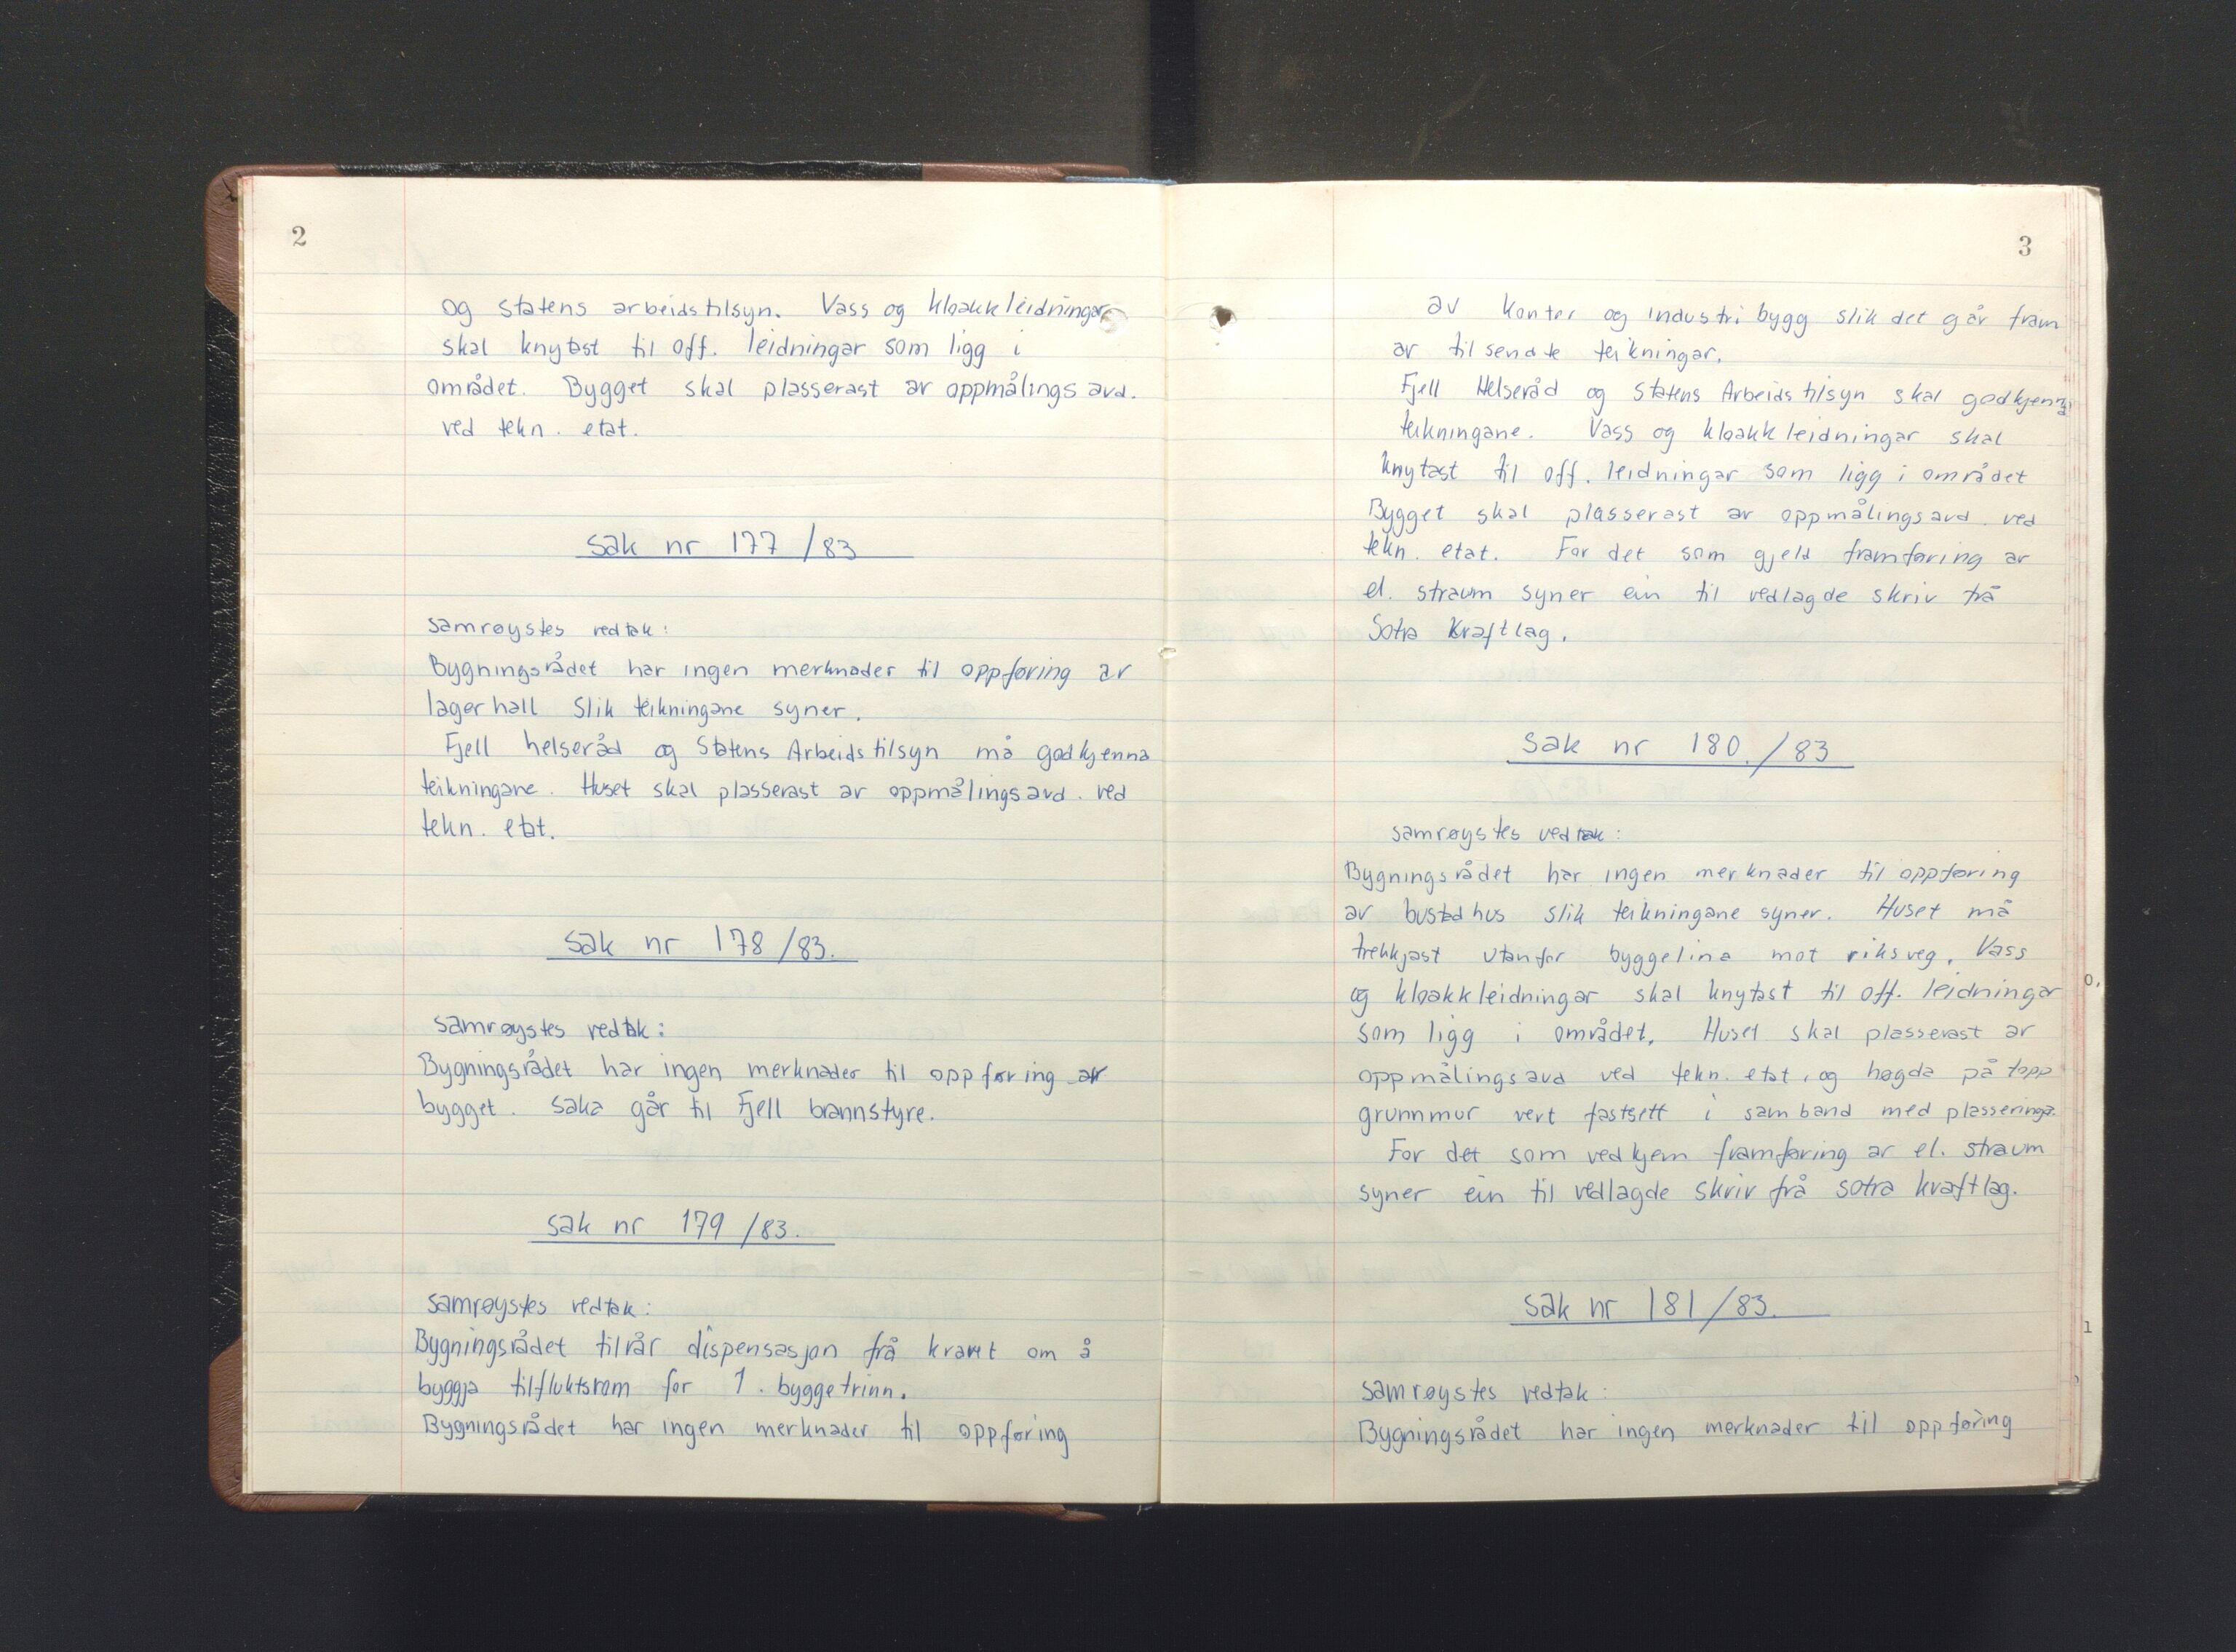 2
og statens arbeidstilsyn. Vass og kloakkleidningar
skal knytast til off. leidningar som ligg i
området. Bygget skal plasserast av oppmålings avd.
ved tekn. etat.
sak nr 177/83
samrøystes vedtak:
Bygningsrådet har ingen merknader til oppføring av
lagerhall slik teikningane syner.
Fjell helseråd og Statens Arbeidstilsyn må godkjenna
teikningane. Huset skal plasserast av oppmålingsavd. ved
tekn. etat.
sak nr 178/83.
samrøystes vedtak:
Bygningsrådet har ingen merknader til oppføring av
bygget. saka går til Fjell brannstyre.
sak nr 179/83.
samrøystes vedtak:
Bygningsrådet tilrår dispensasjon frå kravet om å
byggja tilfluktsrom for 1. byggetrinn.
Bygningsrådet har ingen merknader til oppføring
3
av kontor og industri bygg slik det går fram
av tilsendte teikningar.
Fjell Helseråd og Statens Arbeidstilsyn skal godkjenna
teikningane. Vass og kloakkleidningar skal
knytast til off. leidningar som ligg i området
Bygget skal plasserast av oppmålingsavd. ved
tekn. etat. For det som gjeld framføring av
el. straum syner ein til vedlagde skriv frå
Sotra Kraftlag.
sak nr 180./83
samrøystes vedtak:
Bygningsrådet har ingen merknader til oppføring
av bustadhus slik teikningane syner. Huset må
trekkjast utanfor byggelina mot riksveg. Vass
og kloakkleidningar skal knytast til off. leidningar
som ligg i området. Huset skal plasserast av
oppmålingsavd ved tekn. etat, og høgda på topp
grunnmur vert fastsett i samband med plasseringa.
For det som vedkjem framføring av el. straum
syner ein til vedlagde skriv frå sotra kraftlag.
sak nr 181/83.
samrøystes vedtak:
Bygningsrådet har ingen merknader til oppføring